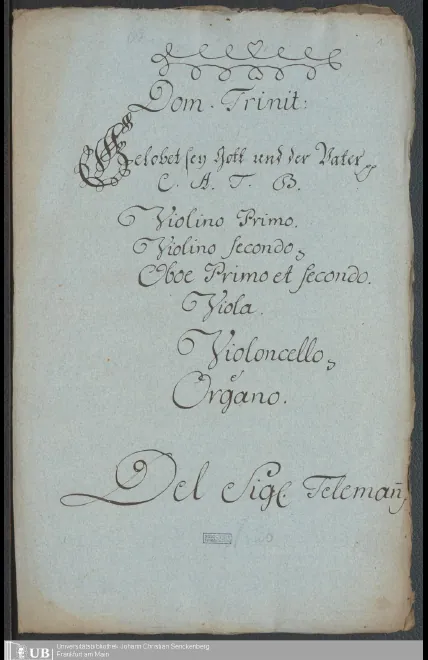 Dom. Trinit:
Gelobet sey Gott und der Vater
C. A. T. B.
Violino Primo.
Violino secondo,
Oboe Primo et secondo.
Viola.
Violoncello,
e
Organo.
Del Sigl. Telemañ,
UB
Universitätsbibliothek Johann Christian Senckenberg
Frankfurt am Main